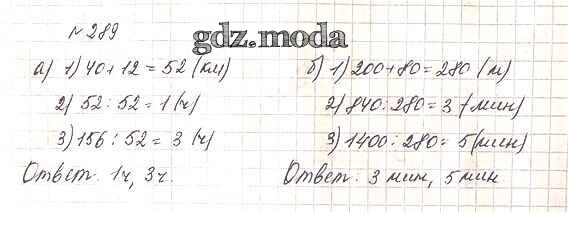 № 289
gdz.moda
а) 1) 40 + 12 = 52 (км)
2) 52 : 52 = 1 (ч)
3) 156 : 52 = 3 (ч)
Ответ: 1ч, 3ч.
б) 1) 200 + 80 = 280 (м)
2) 840 : 280 = 3 (мин)
3) 1400 : 280 = 5 (мин)
Ответ: 3 мин, 5 мин